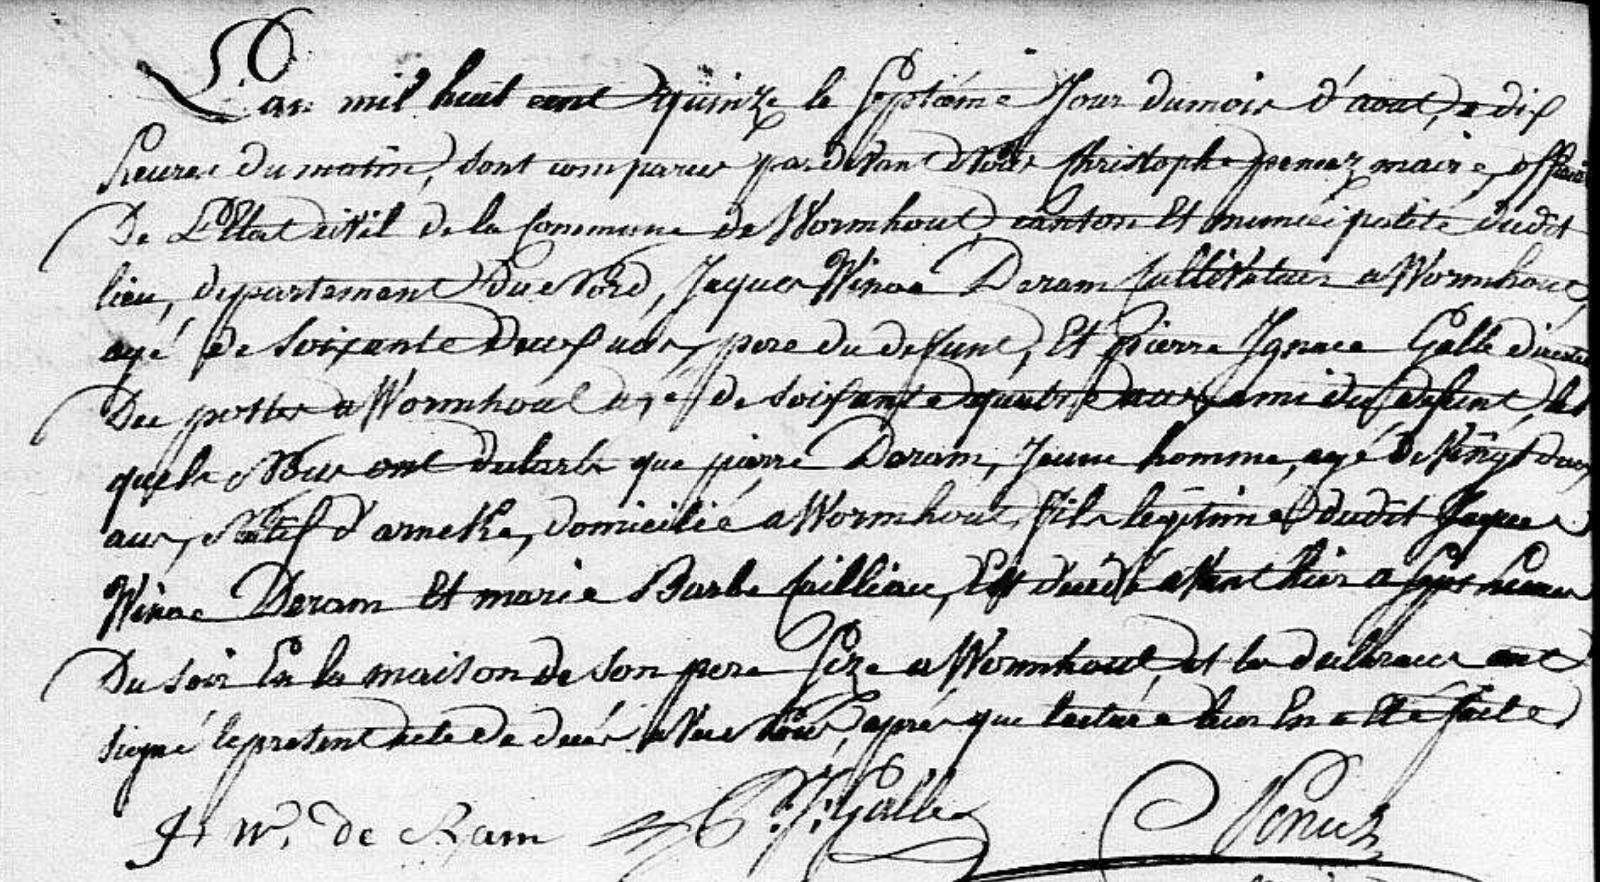 L'an mil huit cent quinze le septieme Jour du mois d'aout, a dix
heures du matin, sont comparus pardevant Nous Christophe maire, officier
De L'Etat civil de la Commune de Wormhout, canton Et municipalité dudit
lieu, departement Du Nord, Jaques Winoc Deram Cultivateur a Wormhout,
agé de soixante Deux ans, pere du defunt, Et pierre Ignace Galle directeur
Des postes a Wormhout agé de soixante quatre ans, ami du defunt, les
quels Nous ont declaré que pierre Deram, Jeune homme, agé De Vingt deux
ans, Natif d'arneke, domicilié a Wormhout, fils legitime dudit Jaques
Winoc Deram Et marie Barbe Cailliau, Est decedé avant hier a sept heures
Du soir En la maison de son pere Size a Wormhout, et les declarans ont
signé le present acte De decés avec Nous, aprés que lecture leur En a Eté faite
J: W. de Ram P: J: Galle